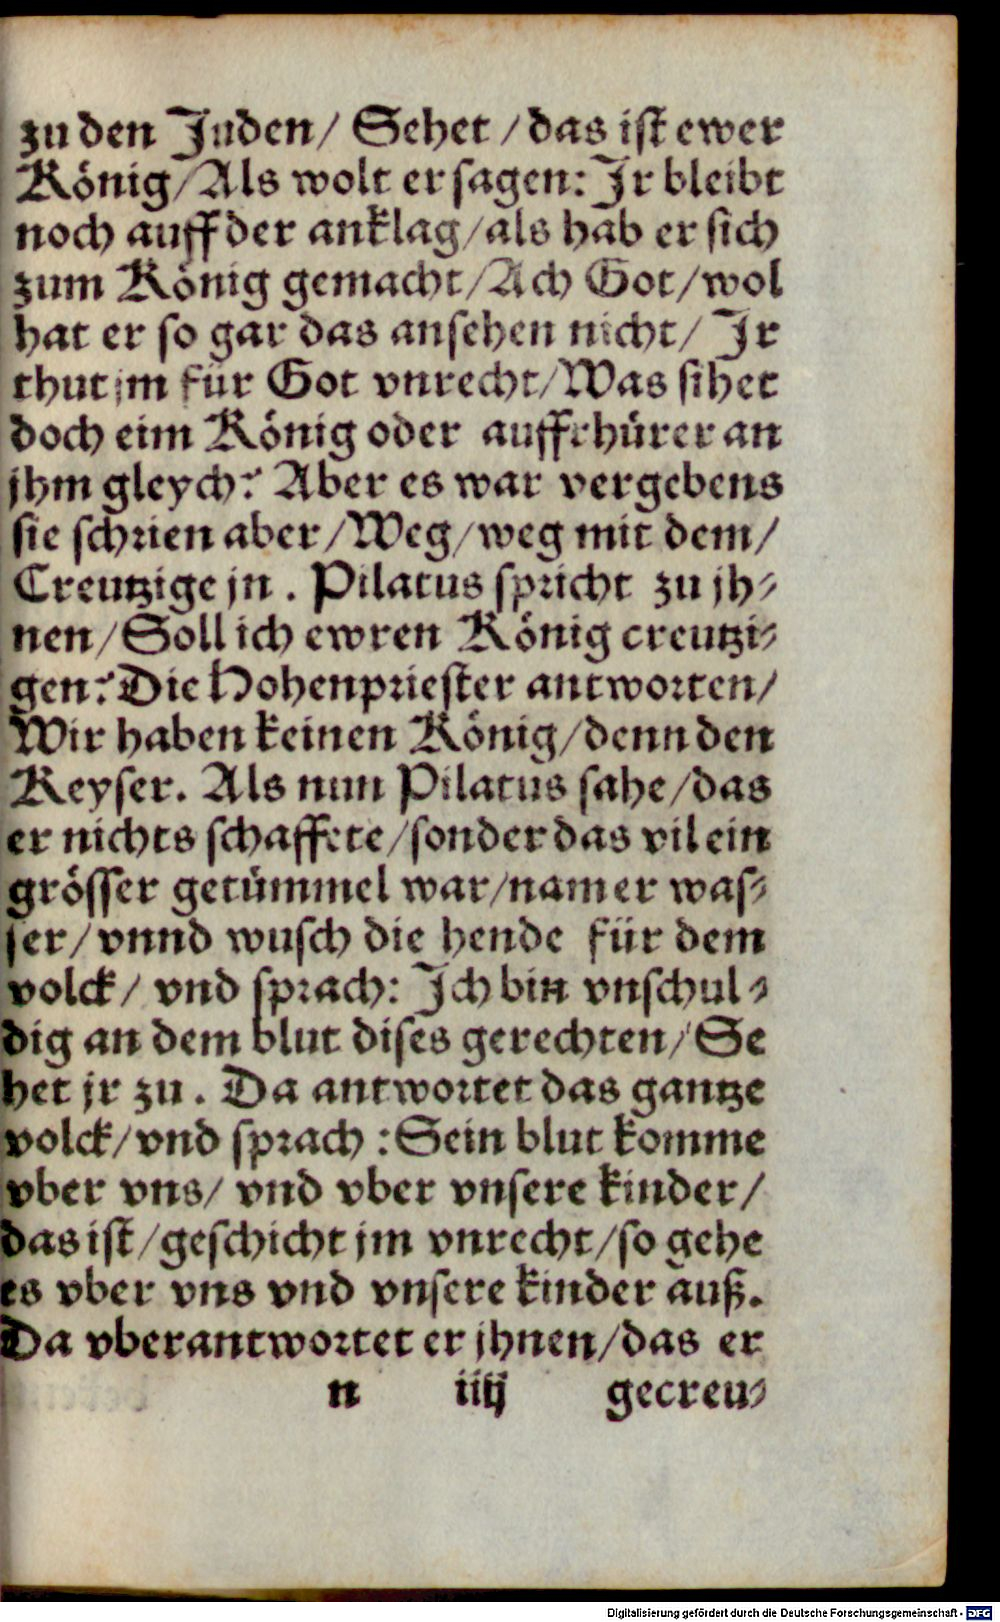 zu den Juden/ Sehet /das ist ewer
König/Als wolt er sagen: Jr bleibt
noch auff der anklag/als hab er sich
zum König gemacht/Ach Got/wol
hat er so gar das ansehen nicht/ Jr
thut jm für Got vnrecht/Was sihet
doch eim König oder auffrhürer an
jhm gleych? Aber es war vergebens
sie schrien aber/Weg/weg mit dem/
Creutzige jn . Pilatus spricht zu jh⸗
nen/Soll ich ewren König creutzi⸗
gen? Die Hohenpriester antworten/
Wir haben keinen König/denn den
Keyser. Als nun Pilatus sahe/das
er nichts schaffete/sonder das vil ein
grösser getümmel war/nam er was⸗
ser/vnnd wusch die hende für dem
volck/ vnd sprach: Jch bin vnschul⸗
dig an dem blut dises gerechten/Se
het jr zu . Da antwortet das gantze
volck/vnd sprach :Sein blut komme
vber vns/ vnd vber vnsere kinder/
das ist/geschicht jm vnrecht/so gehe
es vber vns vnd vnsere kinder auß.
Da vberantwortet er jhnen/das er
n iiij gecreu⸗
Digitalisierung gefördert durch die Deutsche Forschungsgemeinschaft - DFG